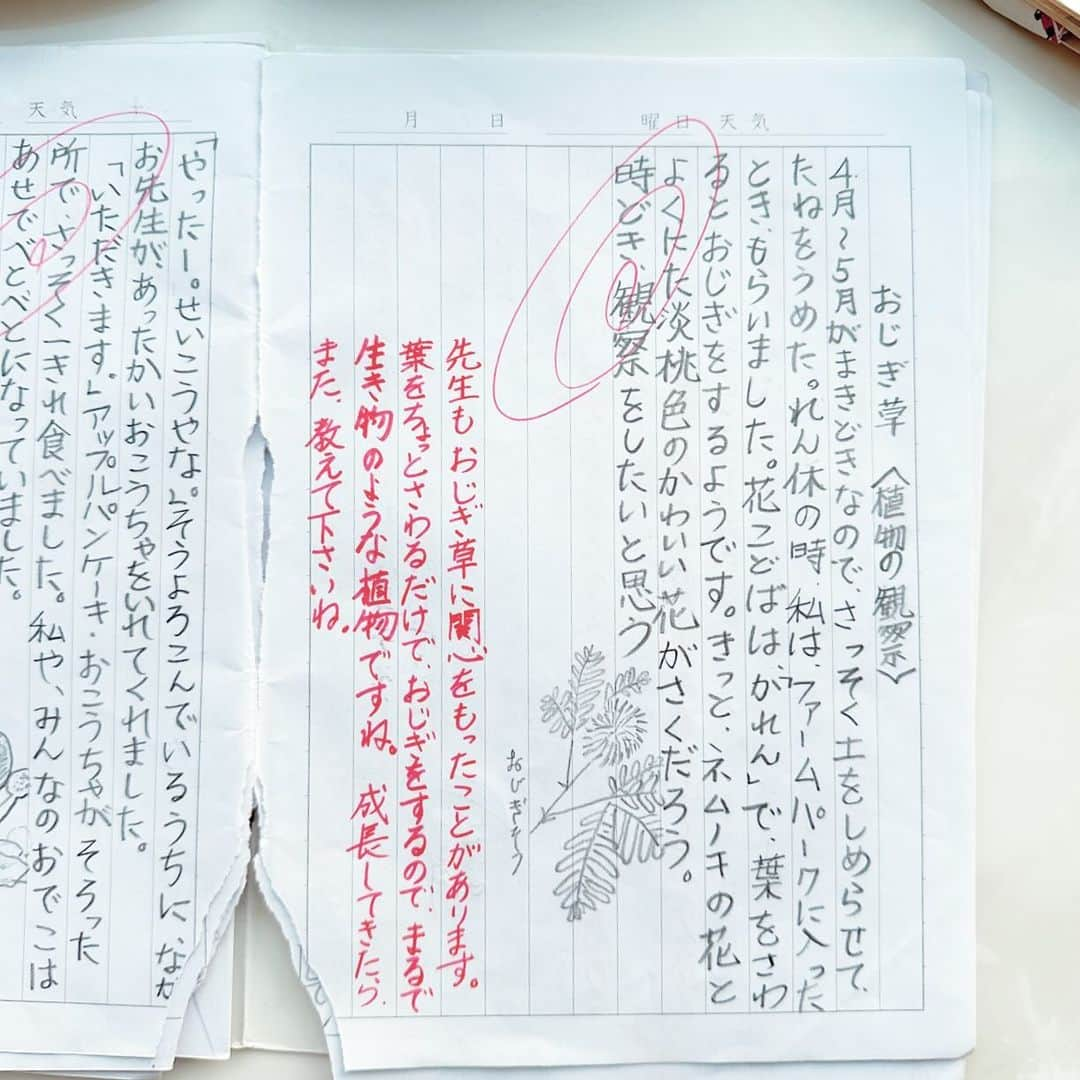 月 日 曜日 天気
おじぎ草 〈植物の観察〉
4月〜5月がまきどきなので、さっそく土をしめらせて、
たねをうめた。れん休の時、私は、ファームパークに入った
とき、もらいました。花ことばは、「がれん」で、葉をさわ
ると おじぎをするようです。きっと、ネムノキの花と
よくにた淡桃色のかわいい花がさくだろう。
時どき、観察をしたいと思う
おじぎそう
先生も おじぎ草に関心をもったことがあります。
葉をちょっとさわるだけで、おじぎをするので、まるで
生き物のような植物ですね。 成長してきたら、
また、教えて下さいね。
天気
「やったー。せいこうやな。」そうよろこんでいるうちに
お先生が、あったかいおこうちゃをいれてくれました。
「いただきます。」アップルパンケーキ・おこうちゃが そろった
所で、さっそく一きれ食べました。私や、みんなのおでこは
あせでべとべとになっていました。